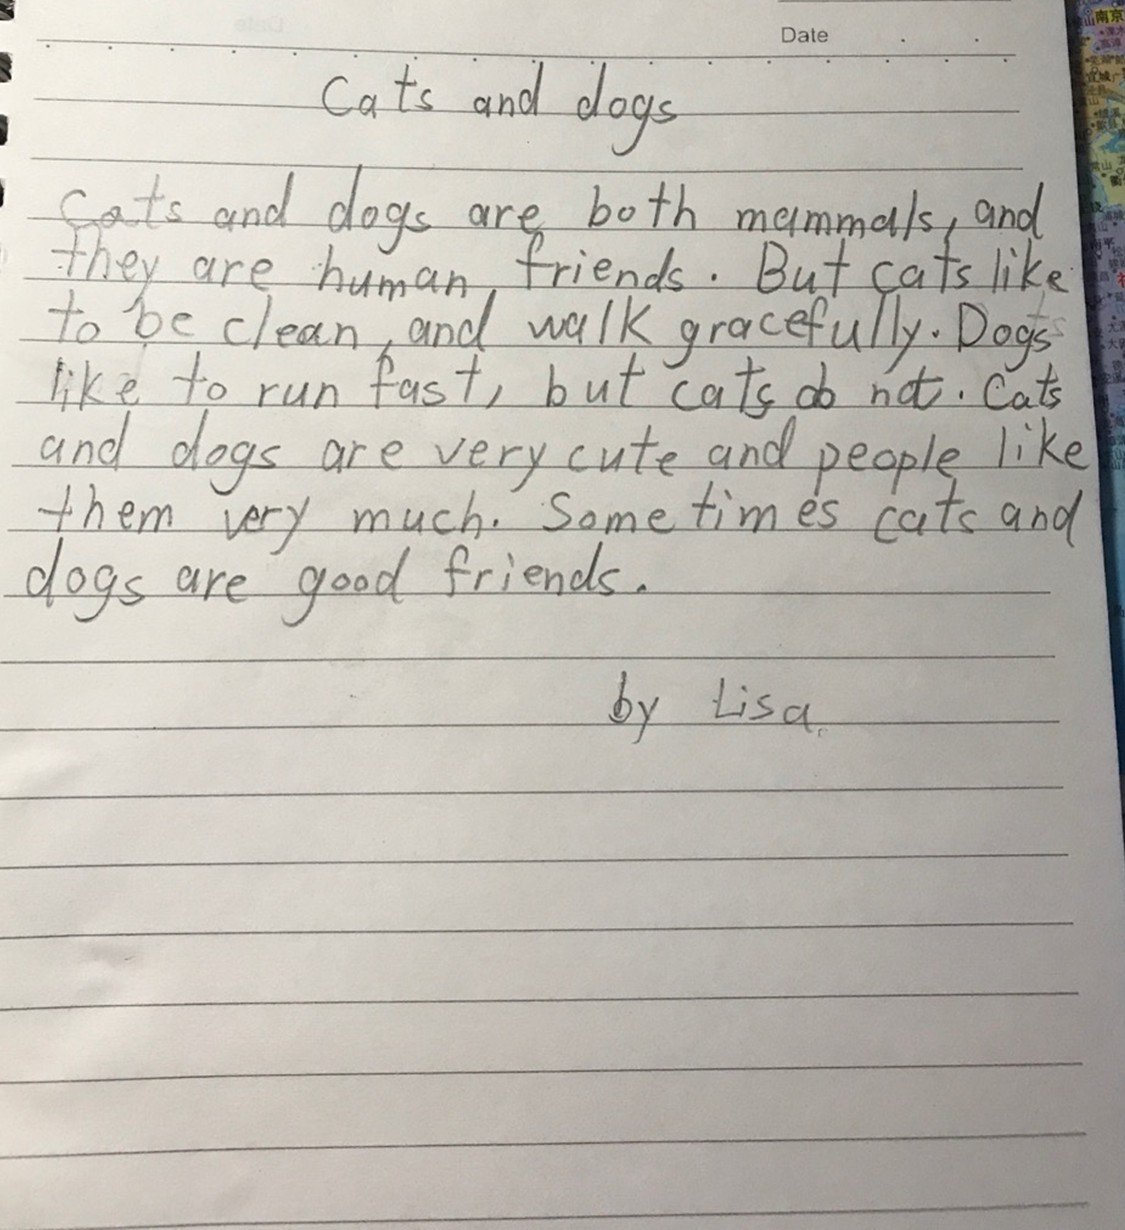 Date
Cats and dogs
Cats and dogs are both mammals, and
they are human friends. But cats like
to be clean, and walk gracefully. Dogs
like to run fast, but cats do not. Cats
and dogs are very cute and people like
them very much. Sometimes cats and
dogs are good friends.
by Lisa
南京